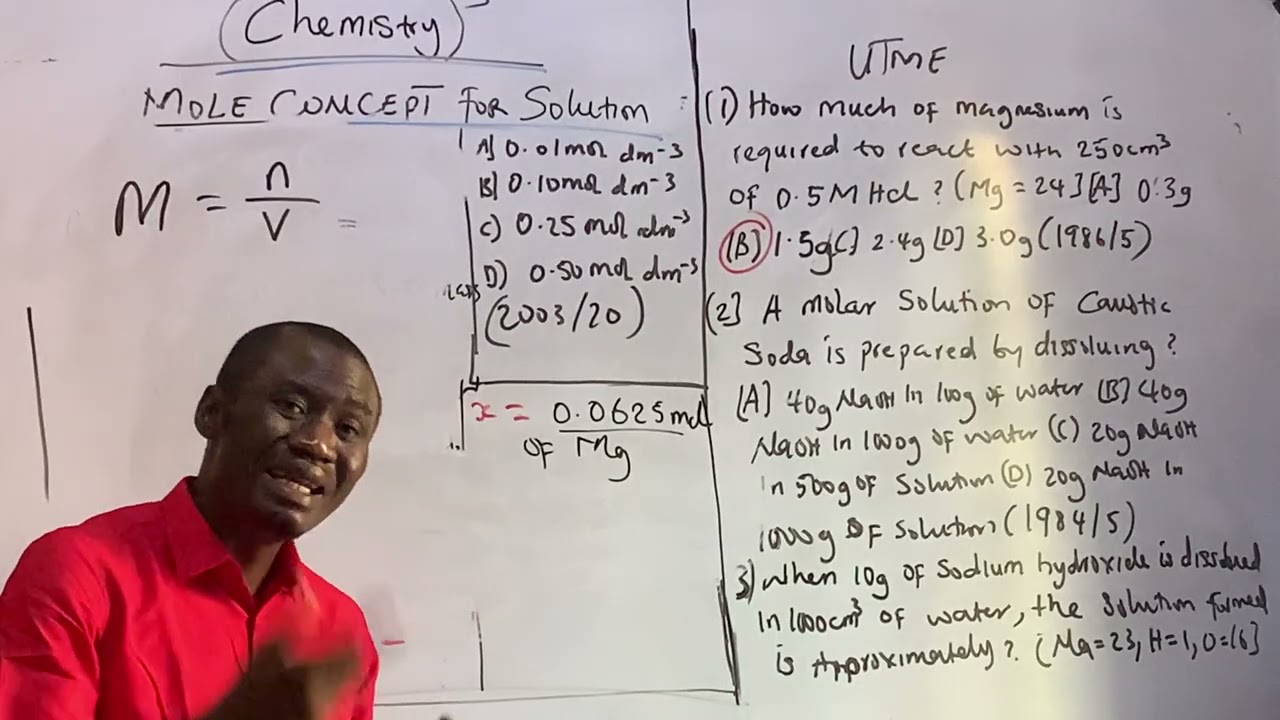 (Chemistry)
MOLE CONCEPT FOR Solution
M = n
V =
A] 0.01mol dm-3
B] 0.10mol dm-3
C) 0.25 mol dm-3
D) 0.50 mol dm-3
(2003/20)
x = 0.0625 mol
OF Mg
UTME
(1) How much of magnesium is
required to react with 250cm3
of 0.5M HCl? (Mg = 24] [A] 0.3g
(B) 1.5g[C] 2.4g [D] 3.0g (1986/5)
(2] A molar Solution of Caustic
Soda is prepared by dissoluing?
(A] 40g NaOH in 100g of water (B] 40g
NaOH in 1000g of water (C) 20g NaOH
in 500g of Solution (D) 20g NaOH in
1000g of Solution? (1984/5)
3) When 10g of Sodium hydroxide is dissolued
in 1000cm3 of water, the Solution formed
is Approximately? (Na=23, H=1, O=16]